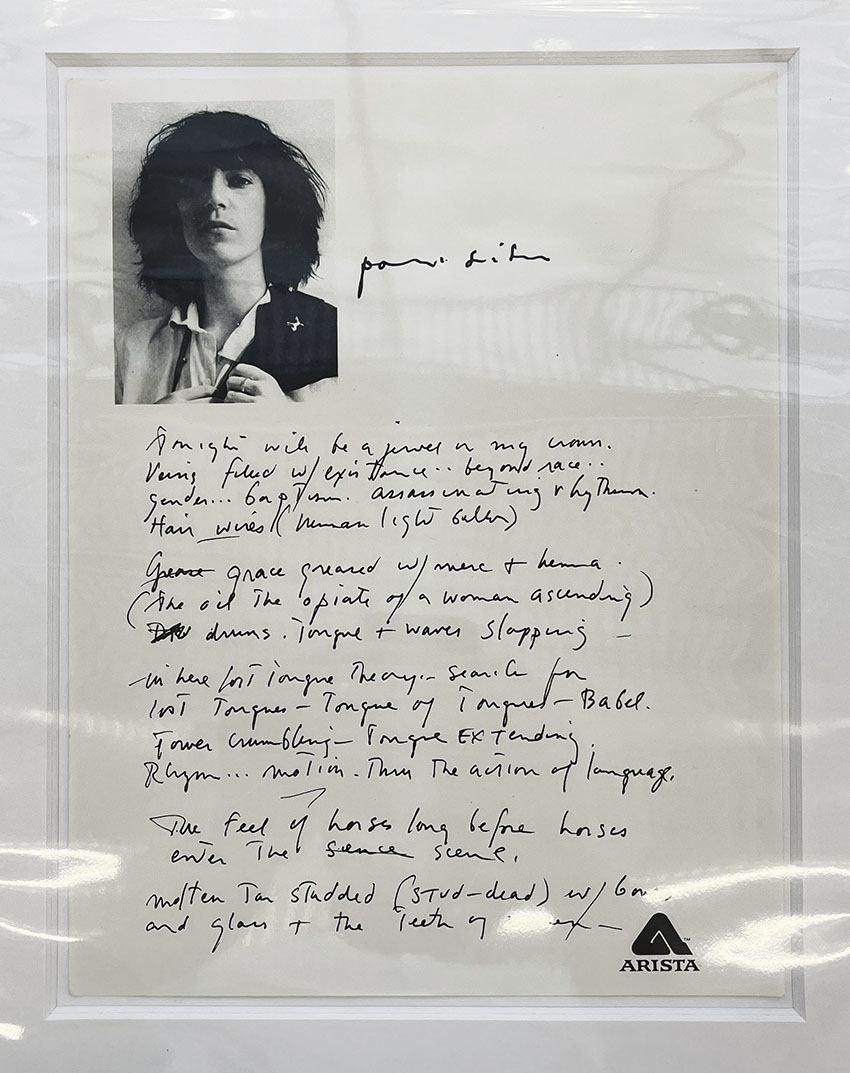 patti smith
Tonight will be a jewel in my crown.
Veins filled w/ existence.. beyond race..
gender... baptism. assassinating rhythmn.
Hair wires (human light bulbs)
Grease grace greased w/ merc + henna.
(the oil the opiate of a woman ascending)
drums. Tongue + waves slapping –
in here lost Tongue Theory. – search for
lost Tongues – Tongue of Tongues – Babel.
Tower crumbling – Tongue EXTending.
Rhym... motion. Thru The action of language.
The Feel of horses long before horses
enter The scene.
molten Tar studded (STUD-dead) w/
and glass + the Teeth of
ARISTA